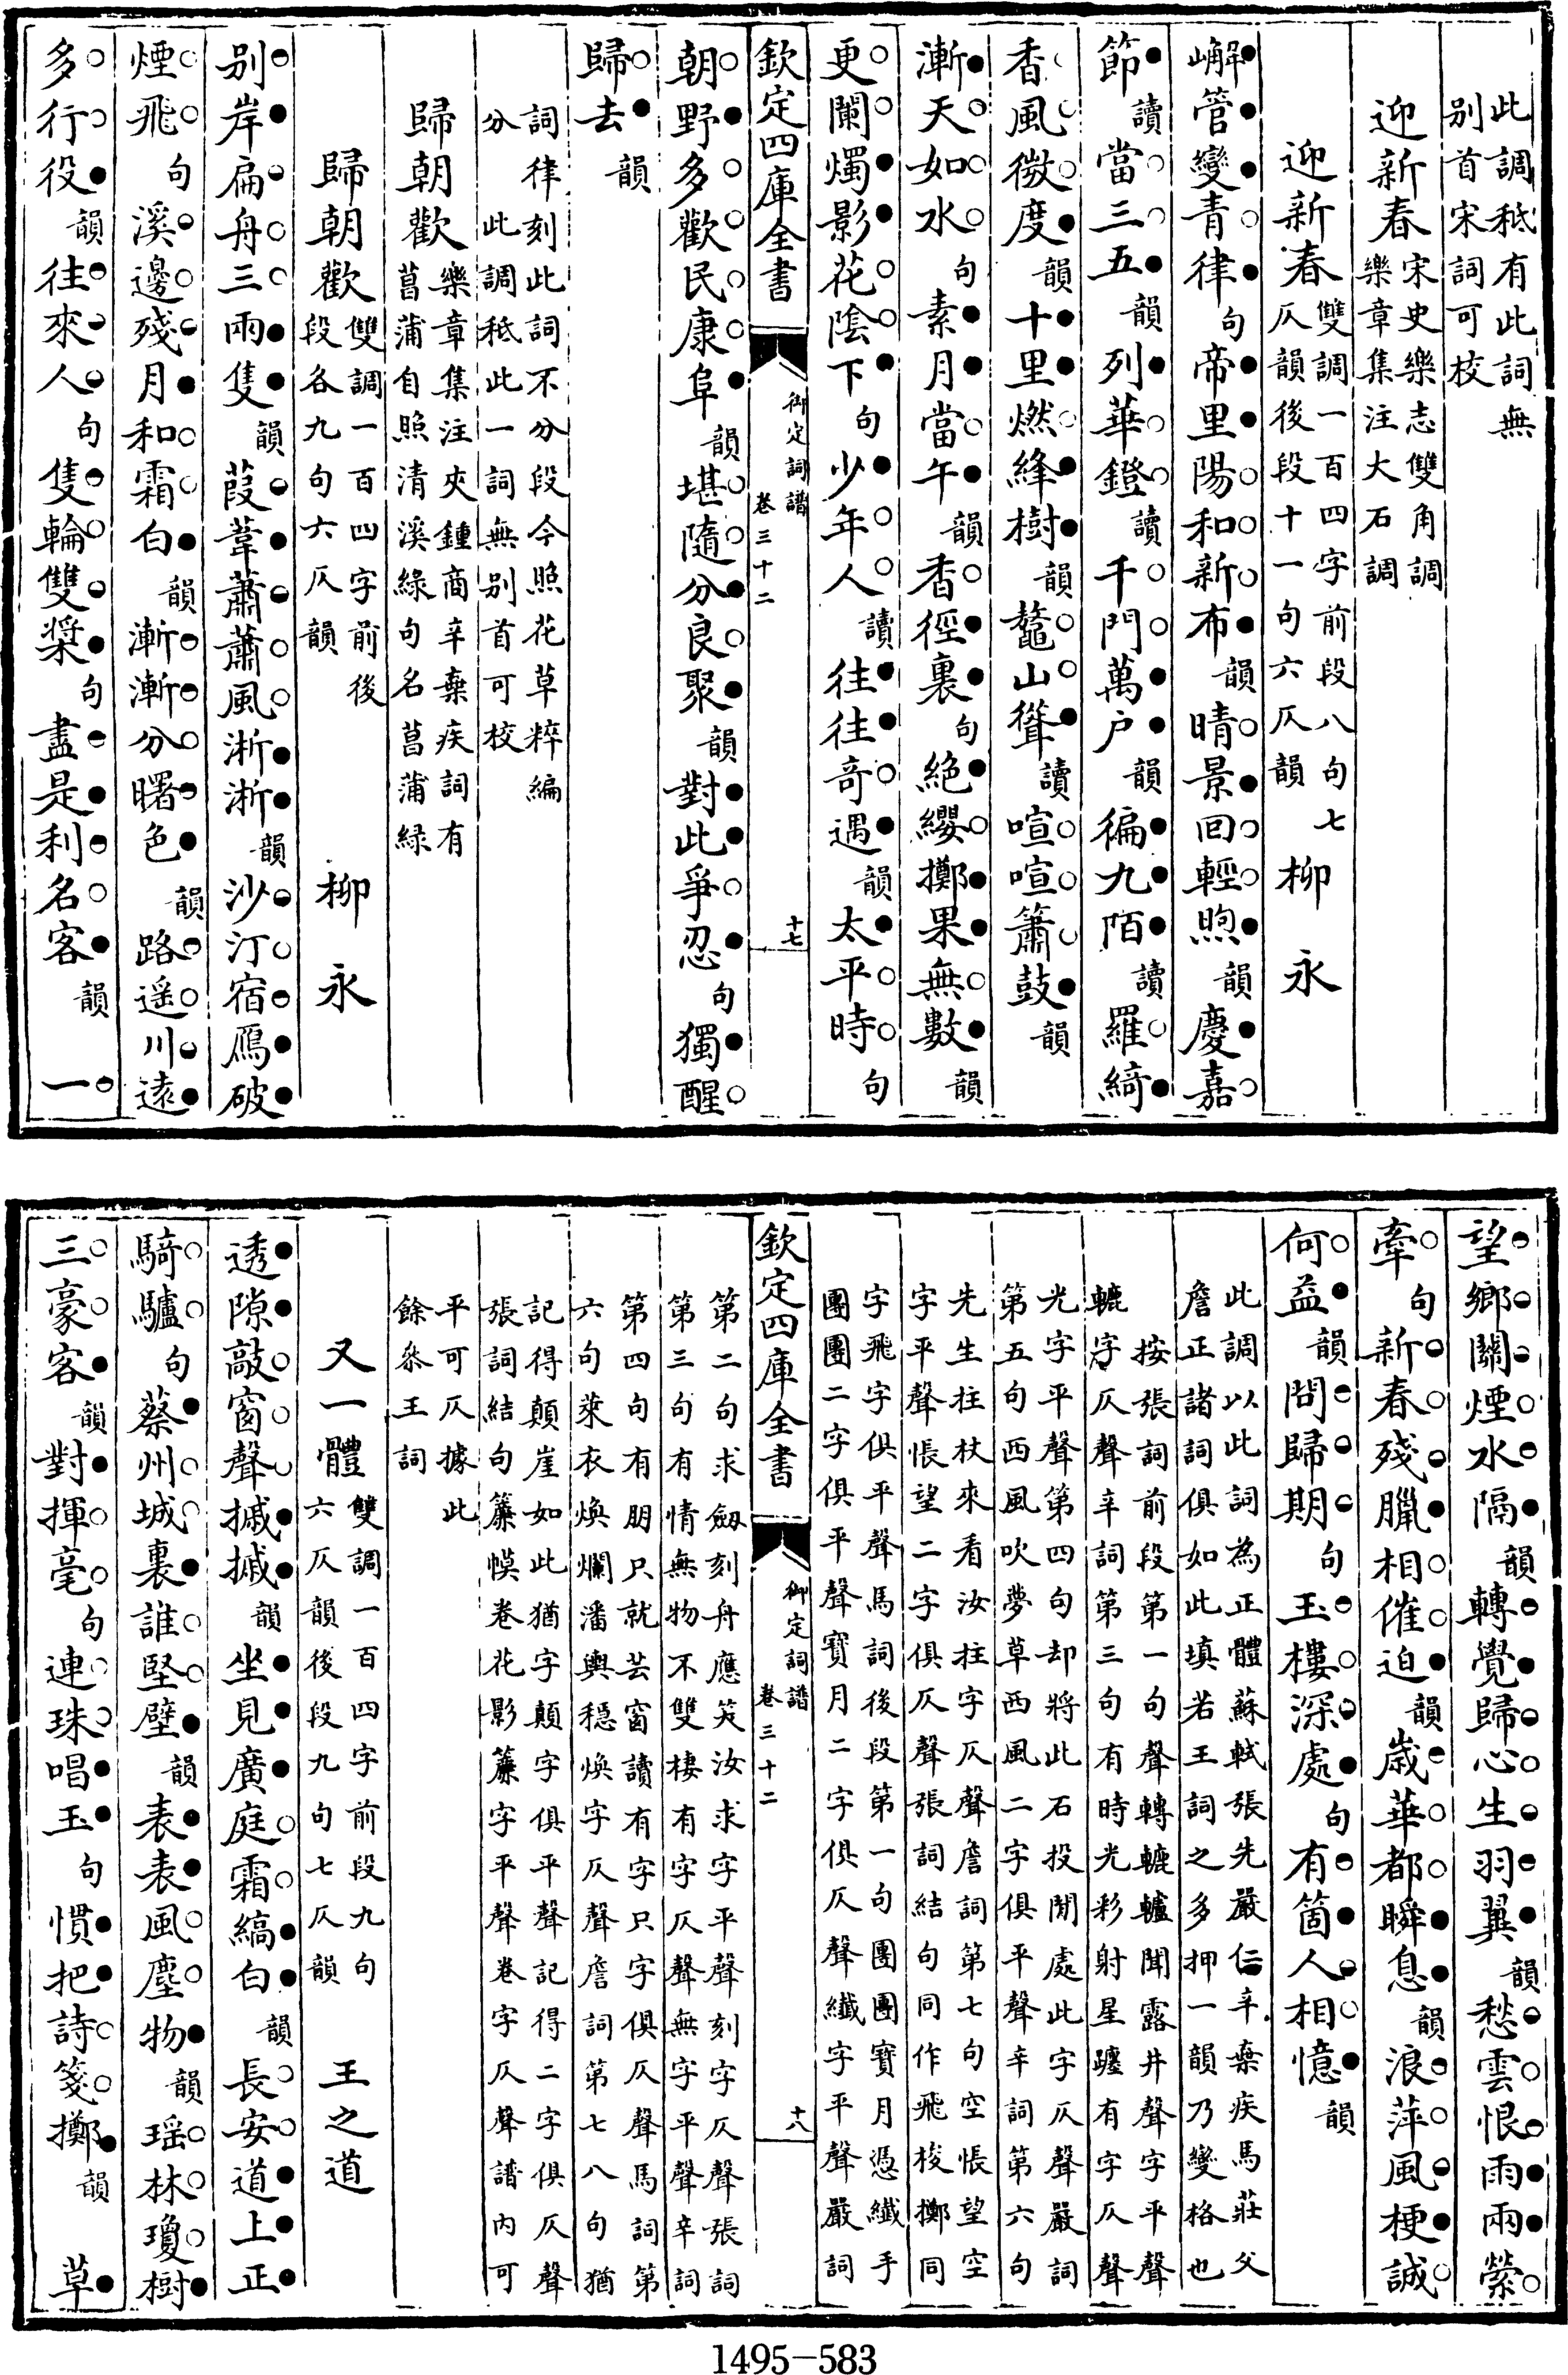 此調秪有此詞無
别首宋詞可校
迎新春宋史樂志雙角調
樂章集注大石調
迎新春雙調一百四字前段八句七
仄韻後段十一句六仄韻　柳永
嶰管變青律句帝里陽和新布韻晴景回輕煦韻慶嘉
節讀當三五韻列華鐙讀千門萬户韻徧九陌讀羅綺
香風微度韻十里燃絳樹韻鼇山聳讀喧喧簫鼓韻
漸天如水句素月當午韻香徑裏句絶纓擲果無數韻
更闌燭影花陰下句少年人讀往往奇遇韻太平時句
欽定四庫全書　御定詞譜　卷三十二　十七
朝野多歡民康阜韻堪隨分良聚韻對此爭忍句獨醒
歸去韻
詞律刻此詞不分段今照花草粹編
分此調秪此一詞無别首可校
歸朝歡樂章集注夾鍾商辛棄疾詞有
菖蒲自照清溪綠句名菖蒲綠
歸朝歡雙調一百四字前後
段各九句六仄韻　柳永
别岸扁舟三兩隻韻葭葦蕭蕭風淅淅韻沙汀宿鴈破
煙飛句溪邊殘月和霜白韻漸漸分曙色韻路遥川遠
多行役韻往來人句隻輪雙槳句盡是利名客韻　一
望鄉關煙水隔韻轉覺歸心生羽翼韻愁雲恨雨兩縈
牽句新春殘臘相催迫韻歲華都瞬息韻浪萍風梗誠
何益韻問歸期句玉樓深處句有箇人相憶韻
此調以此詞為正體蘇軾張先嚴仁辛棄疾馬莊父
詹正諸詞俱如此填若王詞之多押一韻乃變格也
按張詞前段第一句聲轉轆轤聞露井聲字平聲
轆字仄聲辛詞第三句有時光彩射星躔有字仄聲
光字平聲第四句却將此石投閒處此字仄聲嚴詞
第五句西風吹夢草西風二字俱平聲辛詞第六句
先生拄杖來看汝拄字仄聲詹詞第七句空悵望空
字平聲悵望二字俱仄聲張詞結句同作飛梭擲同
字飛字俱平聲馬詞後段第一句團團寶月憑纖手
團團二字俱平聲寶月二字俱仄聲纖字平聲嚴詞
欽定四庫全書　御定詞譜　卷三十二　十八
第二句求劔刻舟應笑汝求字平聲刻字仄聲張詞
第三句有情無物不雙棲有字仄聲無字平聲辛詞
第四句有朋只就芸窗讀有字只字俱仄聲馬詞第
六句萊衣煥爛潘輿穩煥字仄聲詹詞第七八句猶
記得顛崖如此猶字顛字俱平聲記得二字俱仄聲
張詞結句簾幙卷花影簾字平聲卷字仄聲譜内可
平可仄據此
餘叅王詞
又一體雙調一百四字前段九句
六仄韻後段九句七仄韻　王之道
透隙敲窗聲摵摵韻坐見廣庭霜縞白韻長安道上正
騎驢句蔡州城裏誰堅壁韻表表風塵物韻瑶林瓊樹
三豪客韻對揮毫句連珠唱玉句慣把詩箋擲韻　草
1495-583